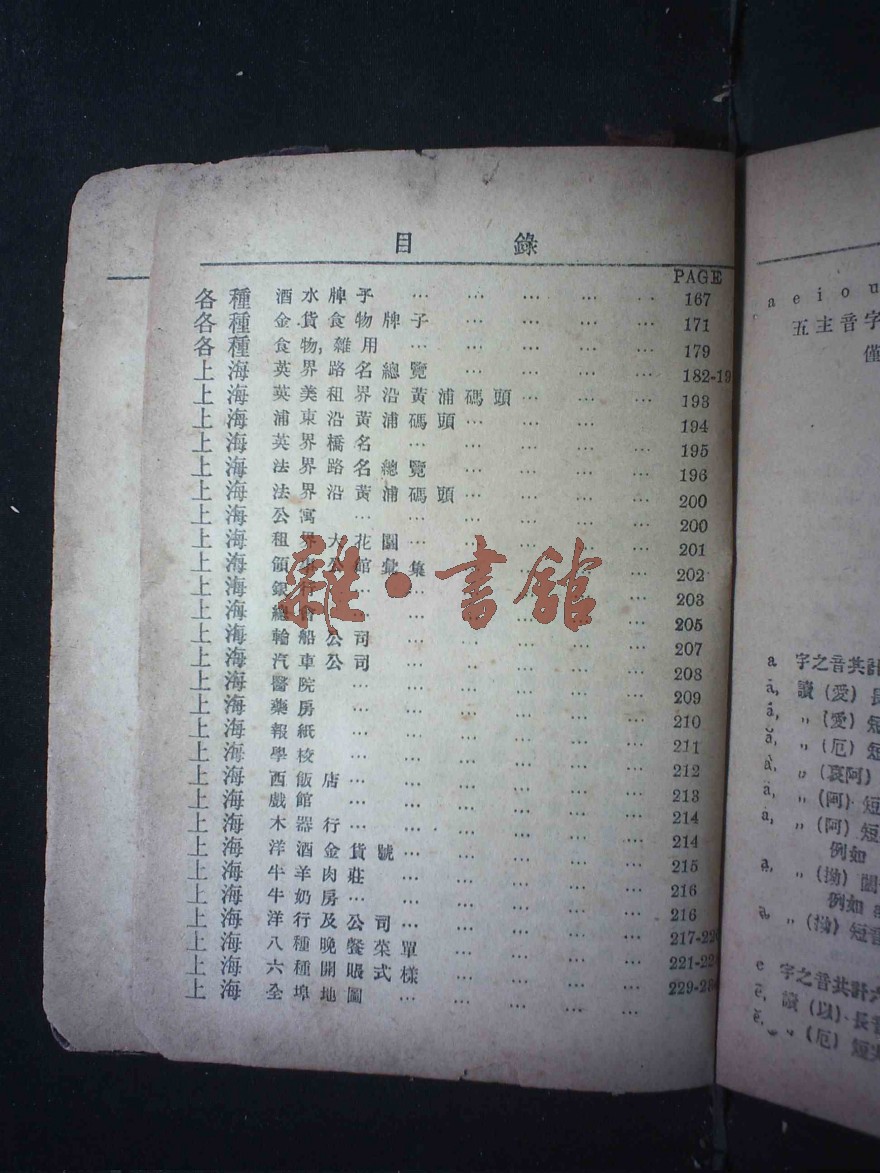 目錄
PAGE
各種 酒水牌子 … … … … 167
各種 金貨食物牌子 … … … … 171
各種 食物,雜用 … … … … 179
上海 英界路名總覽 … … … … 182-19
上海 英美租界沿黃浦碼頭 … … … 193
上海 浦東沿黃浦碼頭 … … … 194
上海 英界橋名 … … … … 195
上海 法界路名總覽 … … … … 196
上海 法界沿黃浦碼頭 … … … 200
上海 公寓 … … … … … 200
上海 租界大花園 … … … 201
上海 領公館彙集 … … … 202
上海 銀 … … … 203
上海 總 … … … 205
上海 輪船公司 … … … 207
上海 汽車公司 … … … … 208
上海 醫院 … … … … … 209
上海 藥房 … … … … … 210
上海 報紙 … … … … … 211
上海 學校 … … … … … 212
上海 西飯店 … … … … … 213
上海 戲館 … … … … … 214
上海 木器行 … … … … … 214
上海 洋酒金貨號 … … … … 215
上海 牛羊肉莊 … … … … 216
上海 牛奶房 … … … … … 216
上海 洋行及公司 … … … … 217-22
上海 八種晚餐菜單 … … … 221-22
上海 六種開賬式樣 … … … 229-23
上海 全埠地圖 … … … …
雜·書館
a e i o u
五主音字
僅
a 字之音共計
ā, 讀 (愛) 長
〃 (愛) 短
〃 (厄) 短
〃 (哀阿)
〃 (阿) 短
〃 (阿) 短
例如
〃 (拗) 闊
例如
〃 (拗) 短音
e 字之音共計六
ē, 讀 (以) 長音
〃 (厄) 短